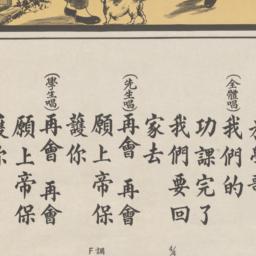 放學歌
(全體唱)我們的
功課完了
我們要回
家去
(先生唱)再會 再會
願上帝保
護你
(學生唱)再會 再會
願上帝保
護你
F 調
4/4